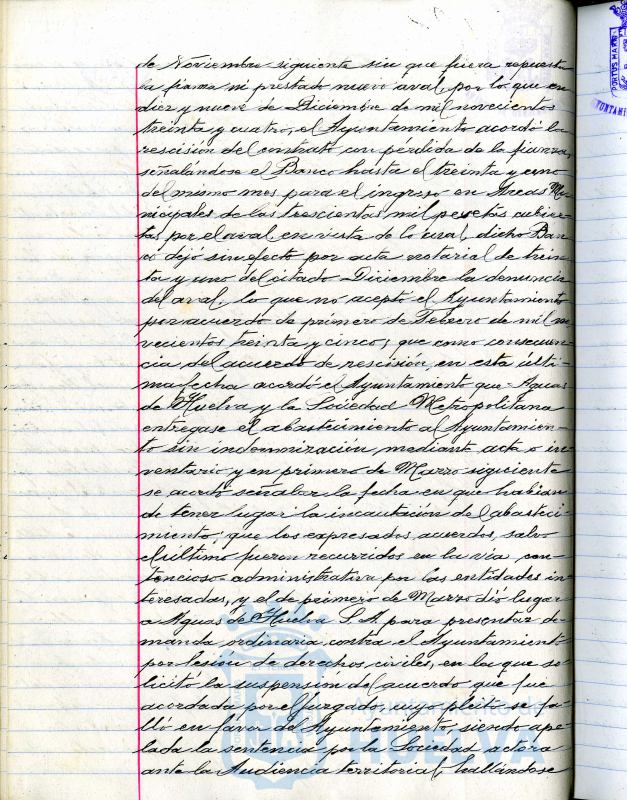 de Noviembre siguiente sin que fuera repuesta
la firma ni prestado nuevo aval, por lo que en
diez y nueve de Diciembre de mil novecientos
treinta y cuatro, el Ayuntamiento acordó la
rescisión del contrato con pérdida de la fianza,
señalándose el Banco hasta el treinta y uno
del mismo mes para el ingreso en Arcas Mu-
nicipales de las trescientas mil pesetas cubier-
tas por el aval, en vista de lo cual, dicho Ban-
co dejó sin efecto por acta notarial de trein-
ta y uno del citado Diciembre la denuncia
del aval, lo que no aceptó el Ayuntamiento
por acuerdo de primero de Febrero de mil no-
vecientos treinta y cinco; que como consecuen-
cia del acuerdo de rescisión, en esta últi-
ma fecha acordó el Ayuntamiento que Aguas
de Huelva y la Sociedad Metropolitana
entregase el abastecimiento al Ayuntamien-
to sin indemnización, mediante acta o in-
ventario, y en primero de Marzo siguiente
se acordó señalar la fecha en que habían
de tener lugar la incautación del abasteci-
miento; que los expresados acuerdos, salvo
el último fueron recurridos en la vía con-
tencioso-administrativa por las entidades in-
teresadas, y el de primero de Marzo dió lugar
a Aguas de Huelva S.A. para presentar de-
manda ordinaria contra el Ayuntamiento
por lesión de derechos civiles, en la que so-
licitó la suspensión del acuerdo que fue
acordada por el Juzgado, cuyo pleito se fa-
lló en favor del Ayuntamiento, siendo ape-
lada la sentencia por la Sociedad actora
ante la Audiencia territorial, hallándose
Ayuntamiento de
HUELVA
PORTUS MARIS